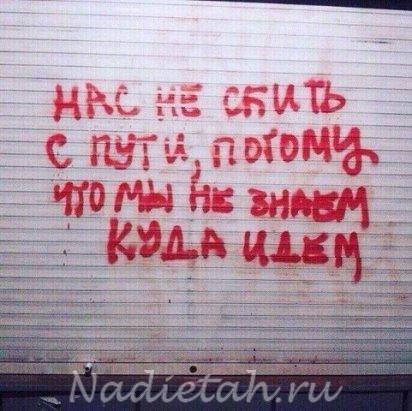 НАС НЕ СБИТЬ
С ПУТИ, ПОТОМУ
ЧТО МЫ НЕ ЗНАЕМ
КУДА ИДЕМ
Nadietah.ru